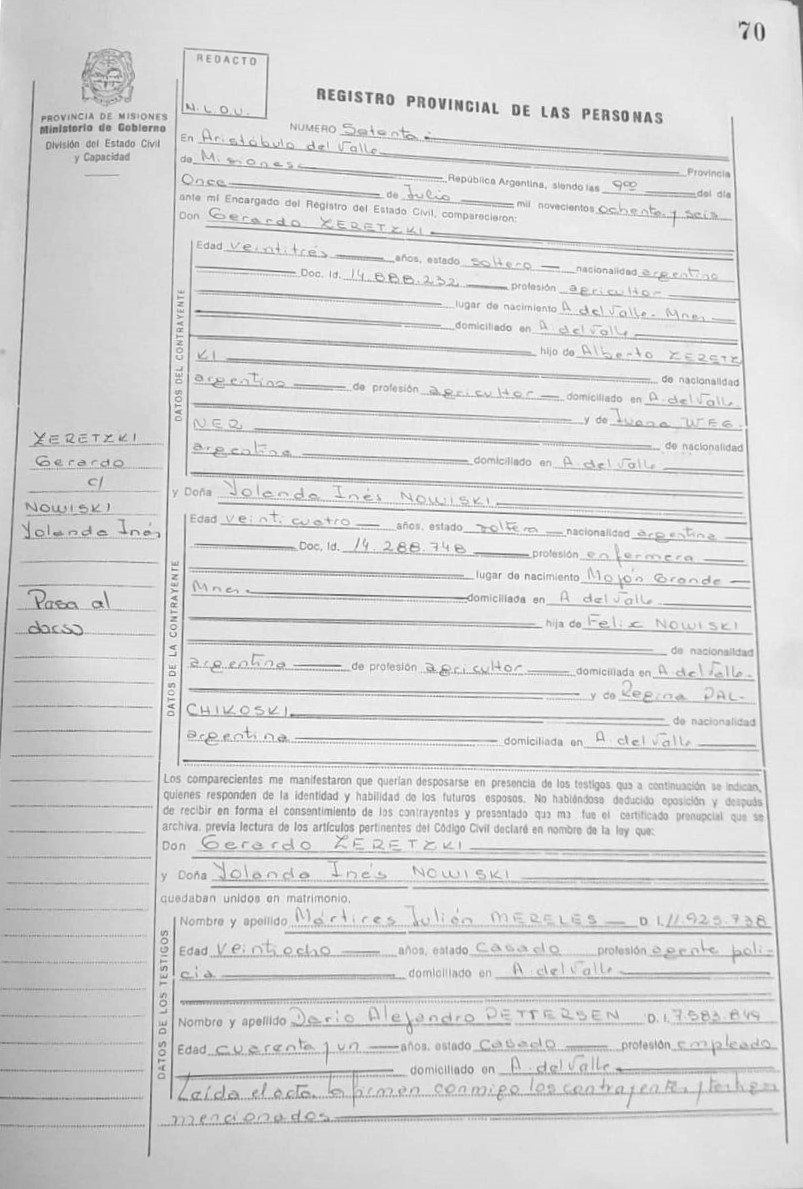 70
REDACTO
N.L.O.U.
PROVINCIA DE MISIONES
Ministerio de Gobierno
División del Estado Civil
y Capacidad
REGISTRO PROVINCIAL DE LAS PERSONAS
NUMERO Setenta.
En Aristóbulo del Valle Provincia
de Misiones República Argentina, siendo las 9oo del día
Once de Julio mil novecientos ochenta y seis
ante mi Encargado del Registro del Estado Civil, comparecieron:
Don Gerardo XERETZKI
DATOS DEL CONTRAYENTE
Edad veintitrés años, estado soltero nacionalidad argentino
Doc. Id. 14.888.232 profesión agricultor
lugar de nacimiento A. del Valle. Mnes
domiciliado en A. del Valle
hijo de Alberto XERETZ
KI de nacionalidad
argentino de profesión agricultor domiciliado en A. del Valle.
y de Juana WEG-
NER de nacionalidad
argentina domiciliado en A. del Valle
y Doña Yolanda Inés NOWISKI
DATOS DE LA CONTRAYENTE
Edad veinticuatro años, estado soltera nacionalidad argentina
Doc. Id. 14.288.748 profesión enfermera
lugar de nacimiento Mojón Grande
Mnes domiciliada en A del Valle
hija de Felix NOWISKI
de nacionalidad
argentino de profesión agricultor domiciliada en A del Valle.
y de Regina DAL-
CHIKOSKI de nacionalidad
argentina domiciliada en A. del Valle
XERETZKI
Gerardo
c/
NOWISKI
Yolanda Inés
Pasa al
dorso
Los comparecientes me manifestaron que querían desposarse en presencia de los testigos que a continuación se indican,
quienes responden de la identidad y habilidad de los futuros esposos. No habiéndose deducido oposición y después
de recibir en forma el consentimiento de los contrayentes y presentado que me fue el certificado prenupcial que se
archiva, previa lectura de los artículos pertinentes del Código Civil declaré en nombre de la ley que:
Don Gerardo XERETZKI
y Doña Yolanda Inés NOWISKI
quedaban unidos en matrimonio.
DATOS DE LOS TESTIGOS
Nombre y apellido Mártires Julián MERELES D.I. 11.925.738
Edad veintiocho años, estado casado profesión agente poli-
cia domiciliado en A del Valle
Nombre y apellido Dario Alejandro PETTERSEN D.I. 7.583.849
Edad cuarenta y un años, estado casado profesión empleado
domiciliado en A. del Valle
Leída el acta, la firman conmigo los contrayentes y testigos
mencionados